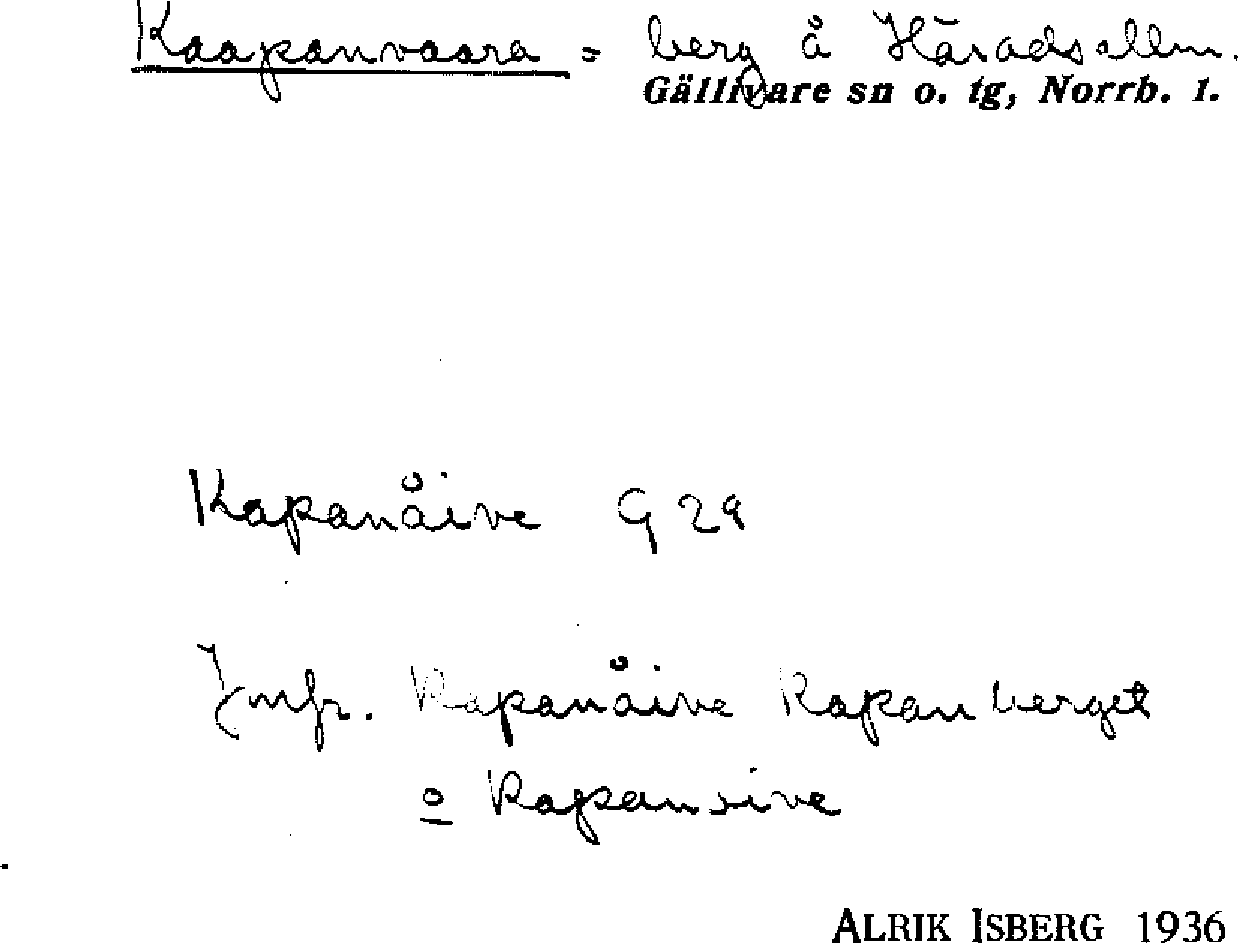 Kaapanvaara = berg å Häradsallm.
Gällivare sn o. tg, Norrb. l.
Kapanåive G 29
Jmfr. Kapanåive Kapanberget
o Kapansive
ALRIK ISBERG 1936